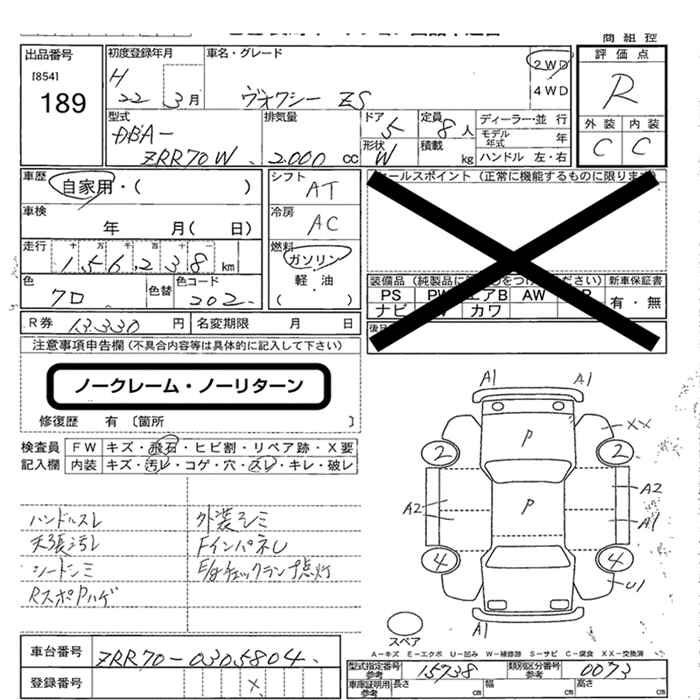 商組控
出品番号
[854]
189
初度登録年月
H 22 3月
車名・グレード
ヴォクシー ZS
2WD
4WD
評価点
R
外装 内装
C C
型式
DBA-
ZRR70W
排気量
2.000 cc
ドア
5
形状
W
定員
8人
積載
kg
ディーラー・並行
モデル年式 年
ハンドル 左・右
車歴
自家用・( )
車検
年 月( 日)
走行
十 万 千 百 十 一
156238 km
色
クロ
色替
色コード
202
シフト
AT
冷房
AC
燃料
ガソリン
軽・油
( )
セールスポイント (正常に機能するものに限ります)
装備品 (純製品に をつけてください)
新車保証書
PS PW エアB AW
ナビ カワ
有・無
R券 13.330 円
名変期限 月 日
注意事項申告欄 (不具合内容等は具体的に記入して下さい)
ノークレーム・ノーリターン
修復歴 有 〔箇所 〕
検査員記入欄
FW キズ・飛石・ヒビ割・リペア跡・X要
内装 キズ・汚レ・コゲ・穴・スレ・キレ・破レ
ハンドルスレ
天張汚レ
シートシミ
RスポPハゲ
外装シミ
FインパネU
E/gチェックランプ点灯
A1 A1
P
XX
2 2
A2
P
A2
A1
4 4
U1
スペア
A-キズ E-エクボ U-凹み W-補修跡 S-サビ C-腐食 XX-交換済
車台番号
ZRR70-0305804
登録番号
X
型式指定番号
参考
15738
類別区分番号
参考
0073
車庫証明用
参考
長さ cm
幅 cm
高さ cm